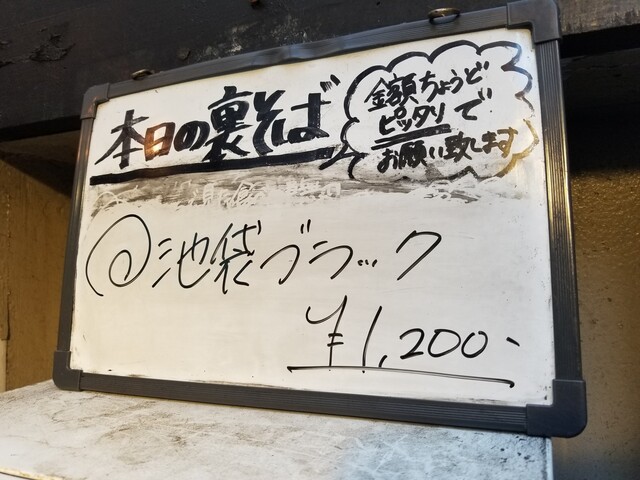 本日の裏そば
金額ちょうど
ピッタリで
お願い致します
@池袋ブラック
¥1,200-